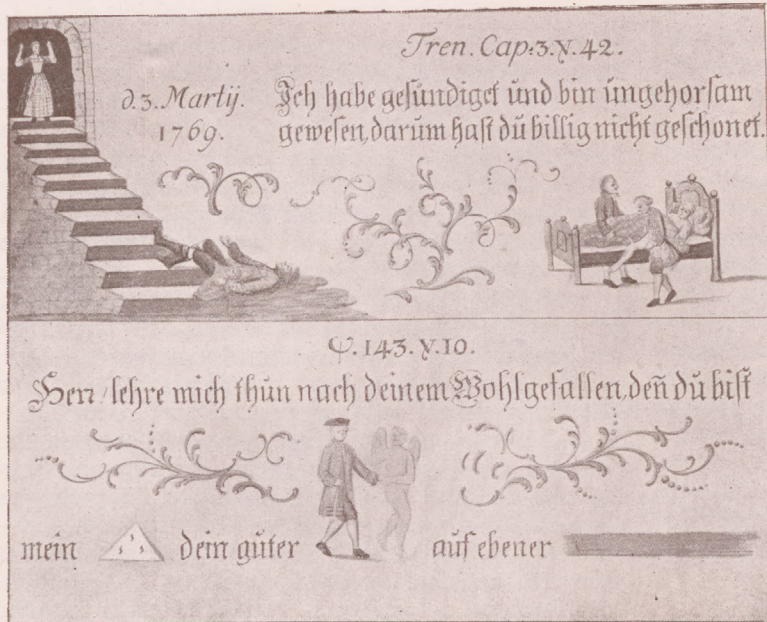 Tren. Cap: 3. V. 42.
d. 3. Martij.
1769.
Ich habe gesündiget und bin ungehorsam
gewesen, darum hast dü billig nicht geschonet.
Ψ. 143. V. 10.
Herr / lehre mich thün nach deinem Wohlgefallen, den̄ dü bist
mein dein güter auf ebener